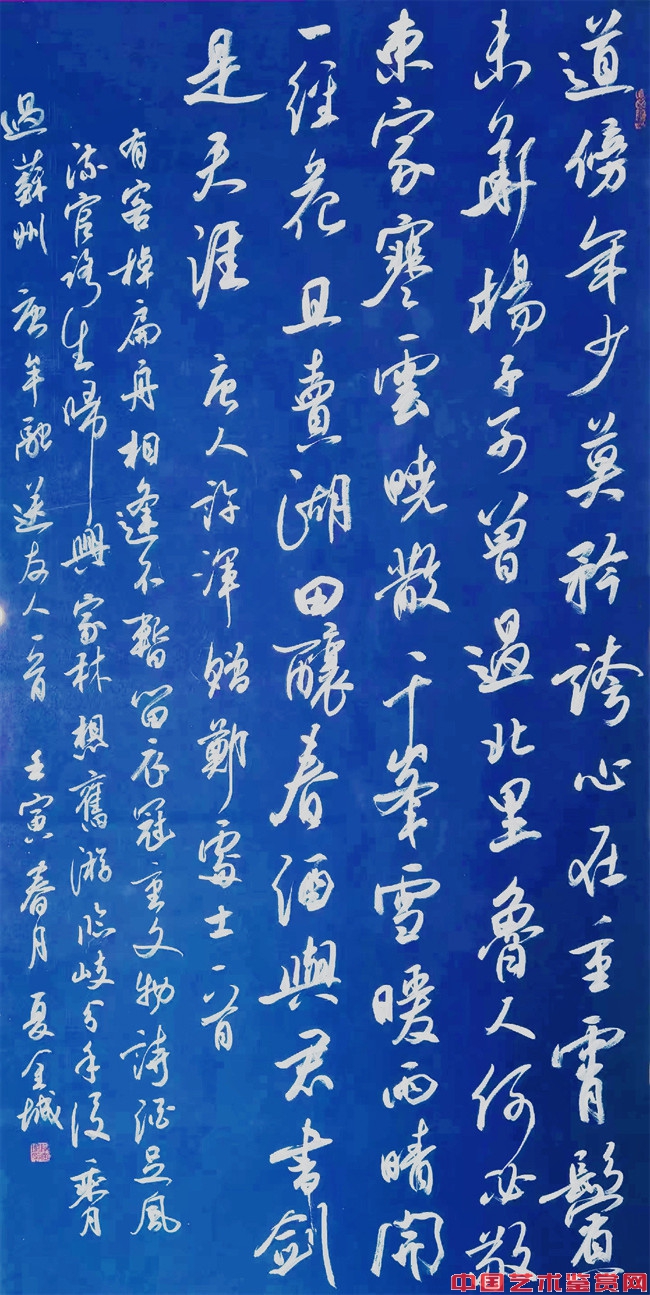 道傍年少莫矜誇心在重霄鬢
未華楊子可曾過北里魯人何必敬
東家寒雲曉散千峯雪暖雨晴開
一徑花且賣湖田釀春酒與君書劍
是天涯 唐人許渾贈鄭處士一首
有客棹扁舟相逢不暫留衣冠重文物詩酒足風
流官路生歸興家林想舊游臨岐分手後乘月
過蘇州 唐牟融送友人一首 壬寅春月 夏全城
中国艺术鉴赏网